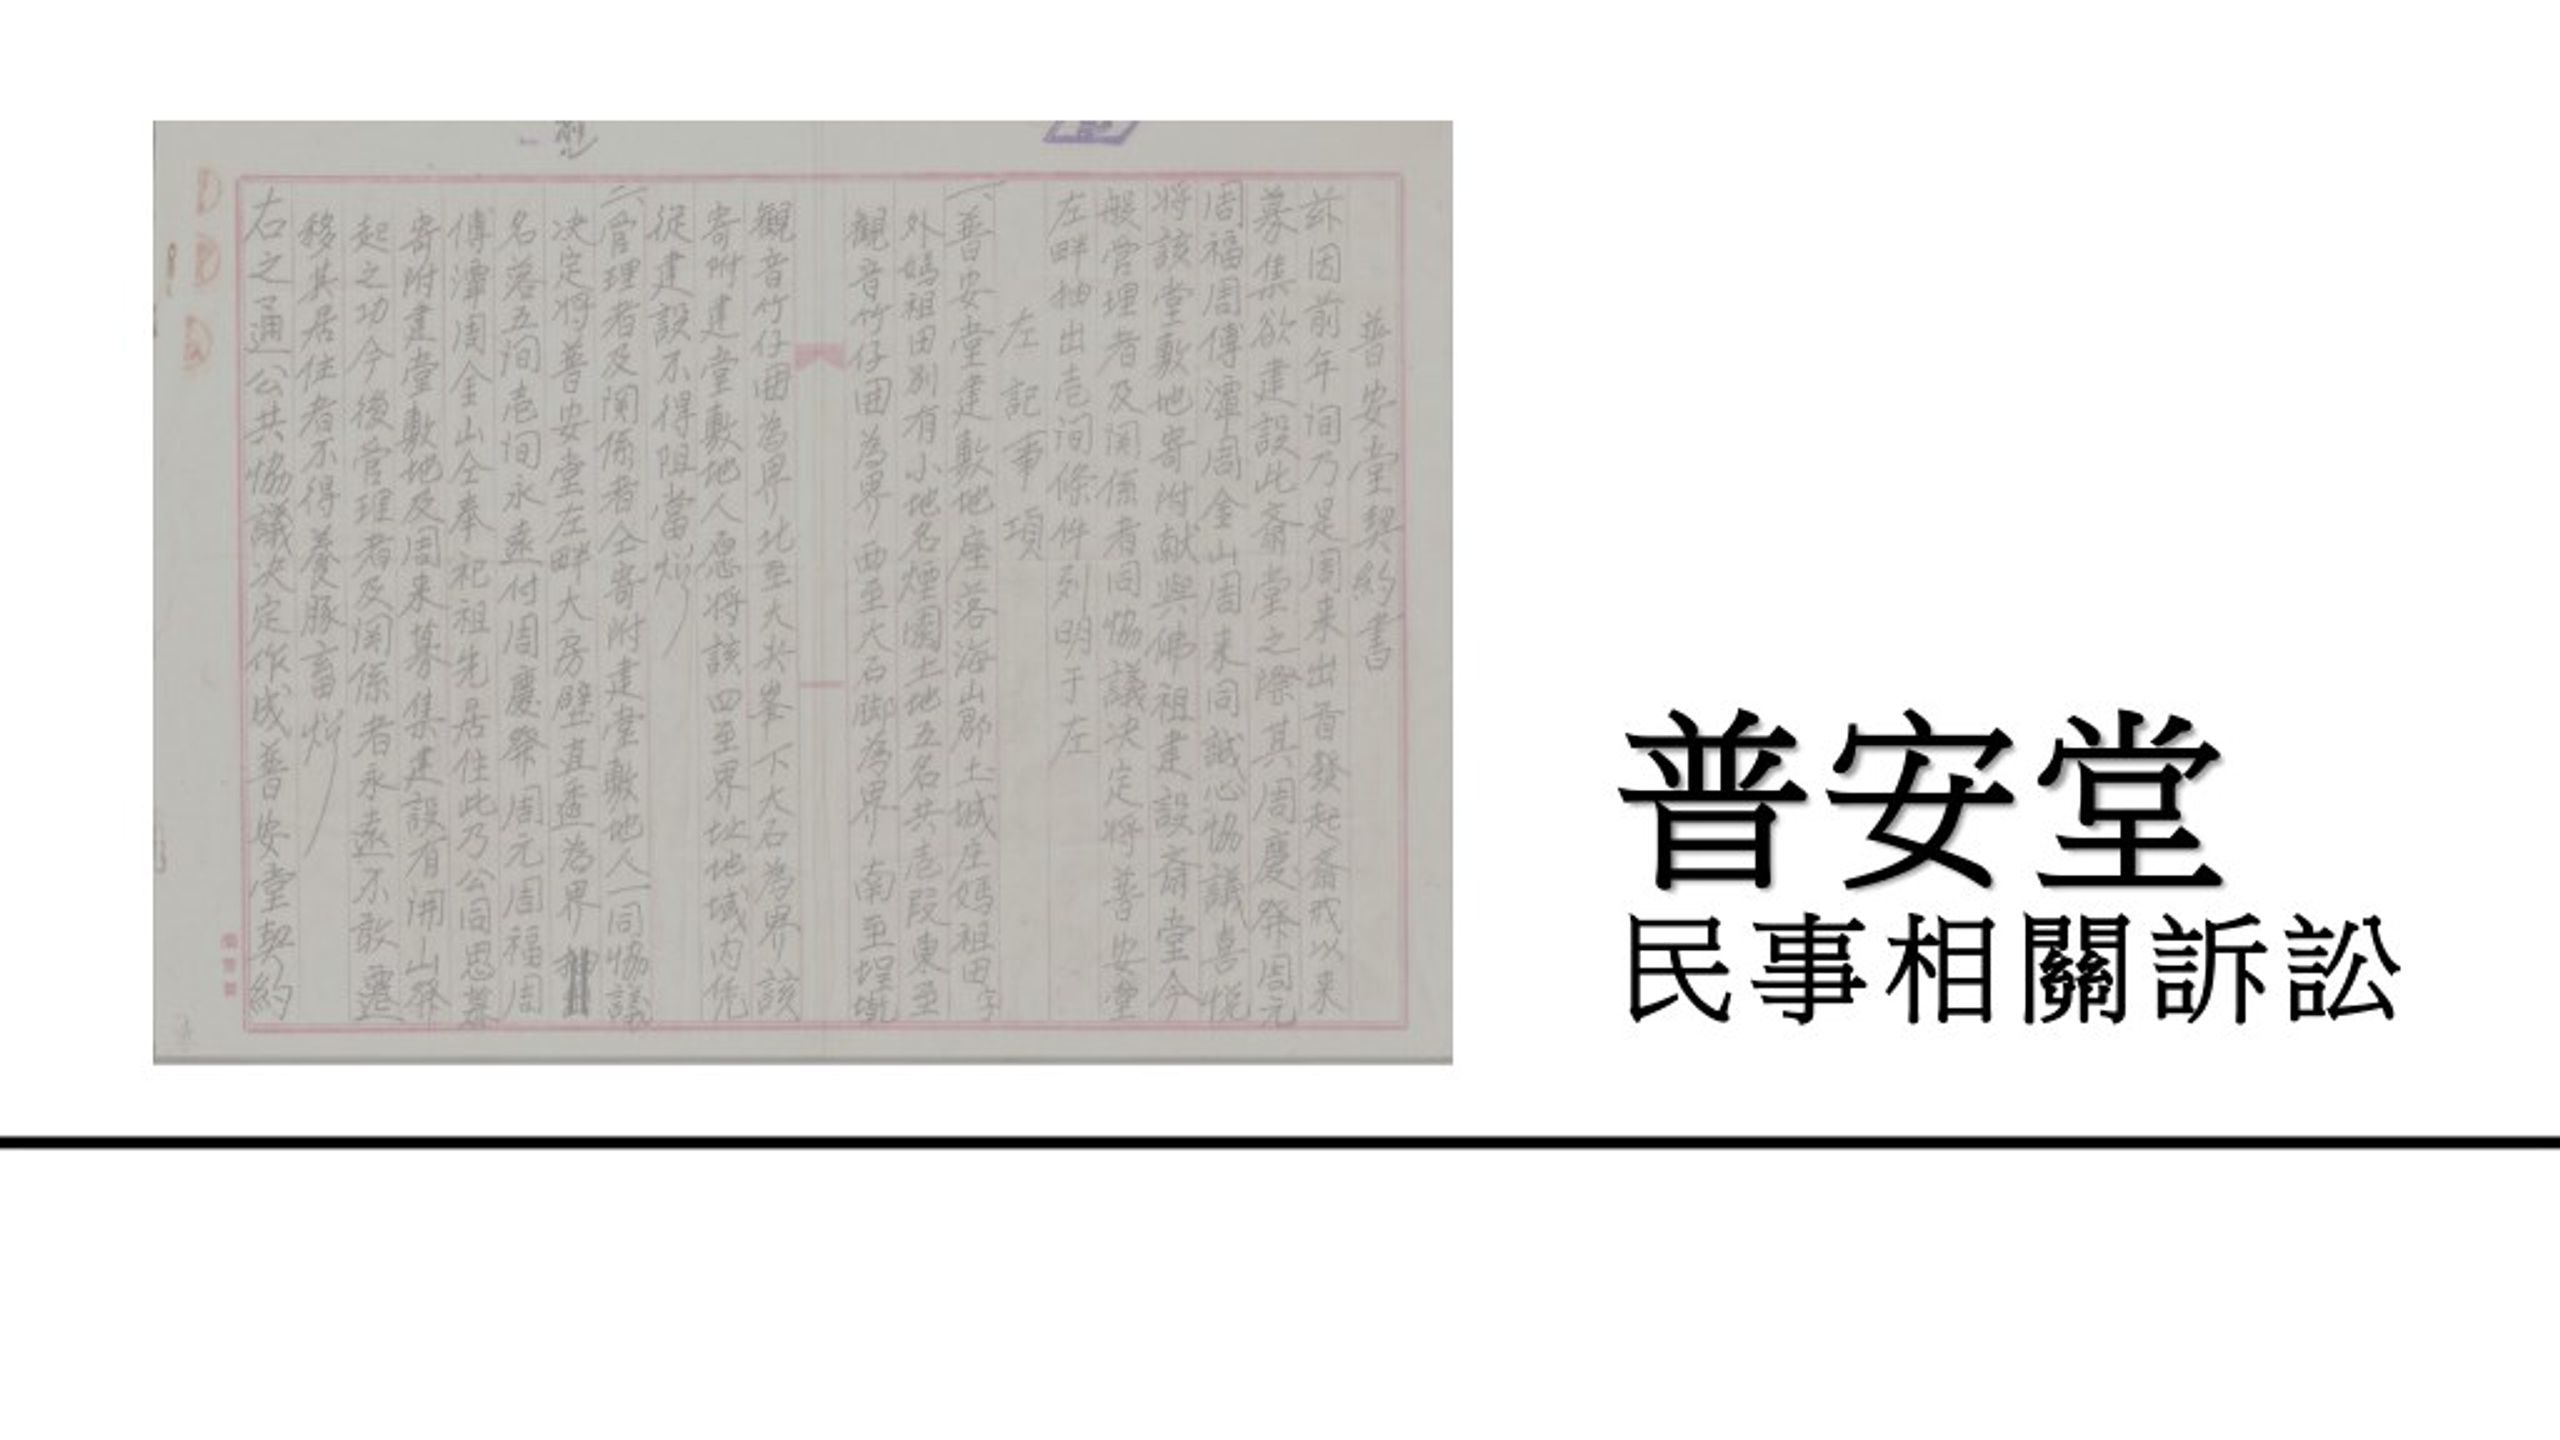 普安堂契約書
茲因前年间乃是周来出首發起齋戒以来
募集欲建設此齋堂之際其周慶祭周元
周福周傅潭周金山周来同誠心協議喜悦
將該堂敷地寄附献與佛祖建設齋堂今
般管理者及関係者同協議决定将普安堂
左畔抽出壱间條件列明于左
左記事項
一、普安堂建敷地座落海山郡土城庄媽祖田字
外媽祖田別有小地名煙園土地五名共壱段東至
觀音竹仔囲為界西至大石脚為界南至埕墘
觀音竹仔囲為界北至大尖峯下大石為界該
寄附建堂敷地人愿将該四至界址地域内凭
從建設不得阻當
二、管理者及関係者仝寄附建堂敷地人一同協議
决定将普安堂左畔大房壁直透為界
名落五间壱间永遠付周慶祭周元周福周
傅潭周金山仝奉祀祖先居住此乃公同思慕
寄附建堂敷地及周来募集建設有開山
起之功今後管理者及関係者永遠不敢遷
移其居住者不得養豚畜
右之通公共協議决定作成普安堂契約
普安堂
民事相關訴訟